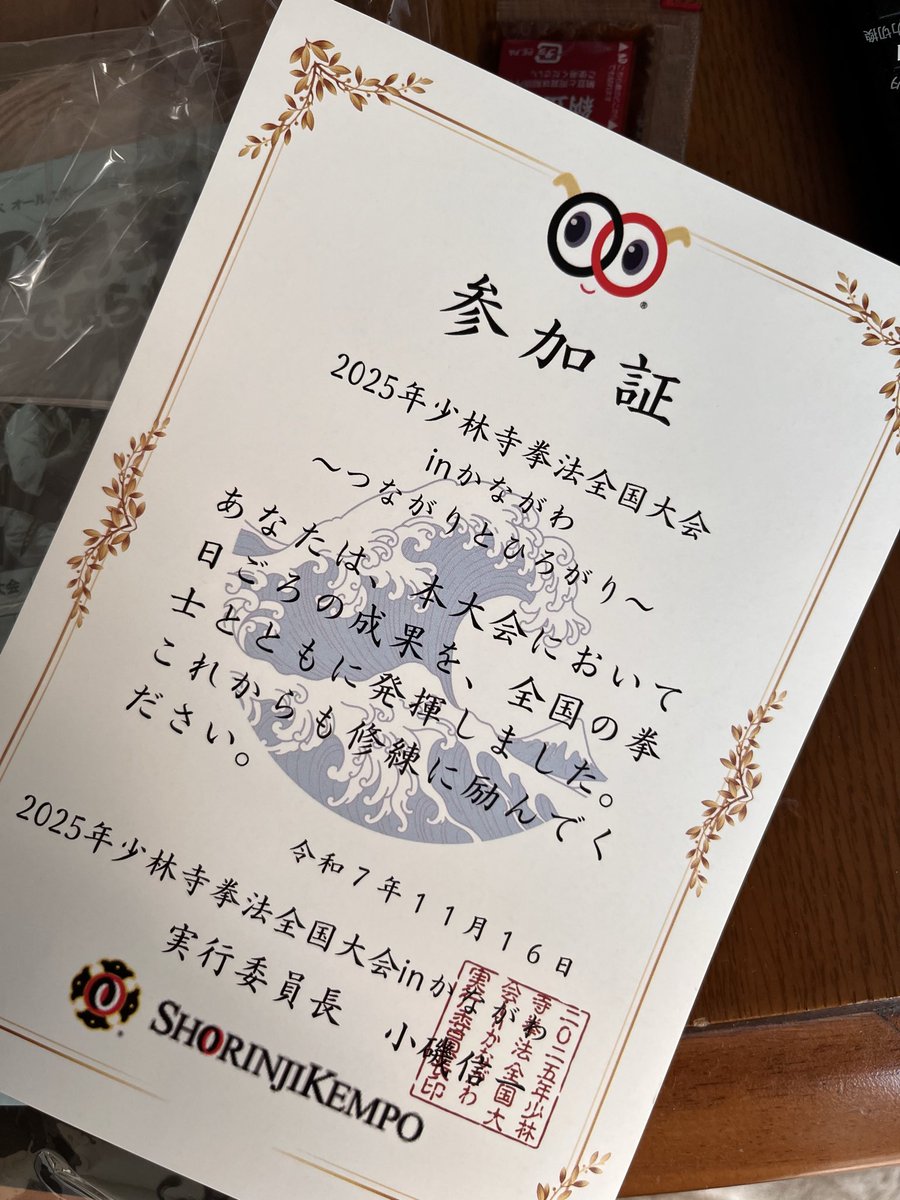 参加証
2025年少林寺拳法全国大会
inかながわ
～つながりとひろがり～
あなたは、本大会において
日ごろの成果を、全国の拳
士とともに発揮しました。
これからも修練に励んでく
ださい。
令和7年11月16日
2025年少林寺拳法全国大会inかながわ
実行委員長 小磯信一
二〇二五年少林
寺拳法全国大
会inかながわ
実行委員長印
SHORINJIKEMPO